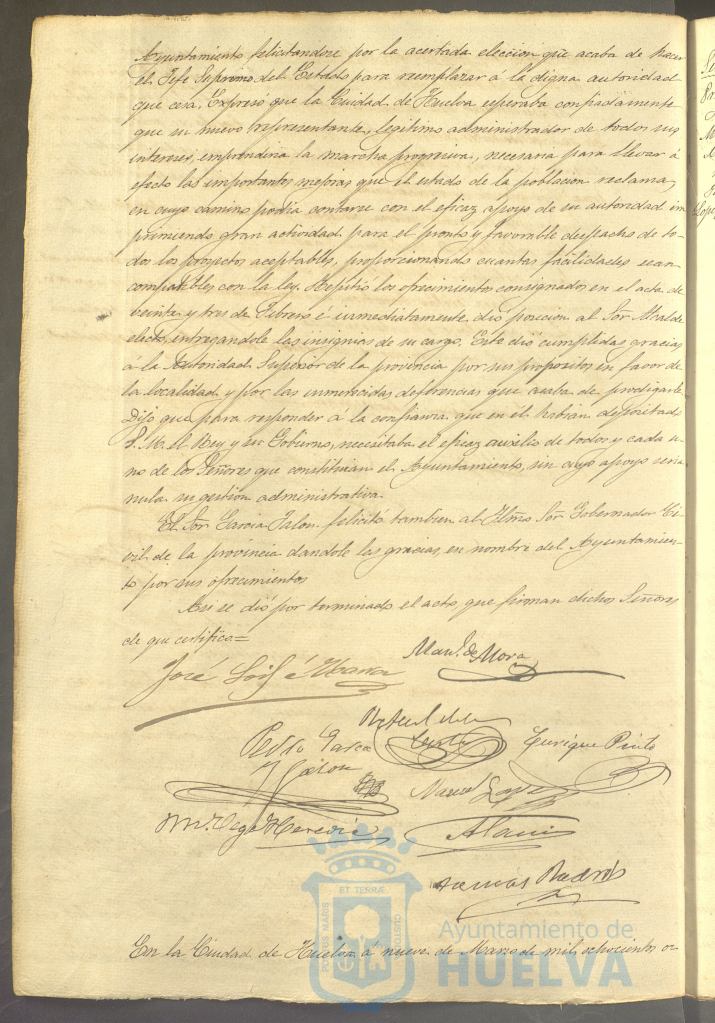 Ayuntamiento felicitandose por la acertada eleccion que acaba de hacer
el Jefe Supremo del Estado para reemplazar á la digna autoridad
que cesa. Expresó que la Ciudad de Huelva esperaba confiadamente
que su nuevo representante, legitimo administrador de todos sus
intereses, emprendiera la marcha progresiva, necesaria para llevar á
efecto las importantes mejoras que el estado de la poblacion reclama,
en cuyo camino podia contarse con el eficaz apoyo de su autoridad im
primiendo gran actividad para el pronto y favorable despacho de to-
dos los proyectos aceptables, proporcionando cuantas facilidades sean
compatibles con la ley. Repitió los ofrecimientos consignados en el acta de
veinte y tres de Febrero é inmediatamente dio posecion al Sor Alcalde
electo, entregandole las insignias de su cargo. Este dió cumplidas gracias
á la Autoridad Superior de la provincia por sus propositos en favor de
la localidad y por las inmerecidas deferencias que acaba de prodigarle
Dijo que para responder á la confianza que en él habian depositado
S. M. el Rey y su Gobierno, necesitaba el eficaz auxilio de todos y cada u-
no de los Señores que constituian el Ayuntamiento, sin cuyo apoyo seria
nula su gestion administrativa.
El Sor Garcia Jalon felicitó tambien al Ilmo Sor Gobernador Ci-
vil de la provincia dandole las gracias, en nombre del Ayuntamien-
to por sus ofrecimientos
Asi se dió por terminado el acto, que firman dichos Señores
de que certifico=
José Ibarra
Manl. de Mora
Pedro Garcia
Jalon
Rafael de la
Enrique Pinto
Manuel Lopez
Ml. Vega Heredia
ET TERRÆ
PORTUS MARIS
CUSTOS
Ayuntamiento de
HUELVA
En la Ciudad de Huelva á nueve de Marzo de mil ochocientos o-